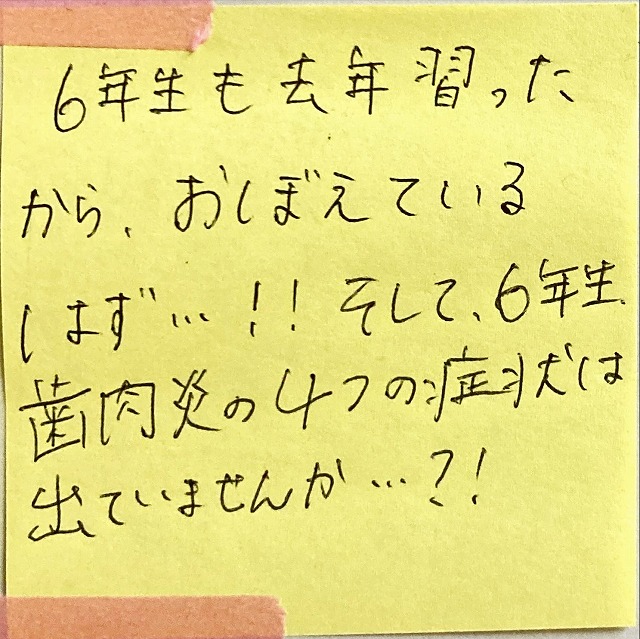 6年生も去年習った
から、おぼえている
はず…!!そして、6年生、
歯肉炎の4つの症状は
出ていませんか…?!